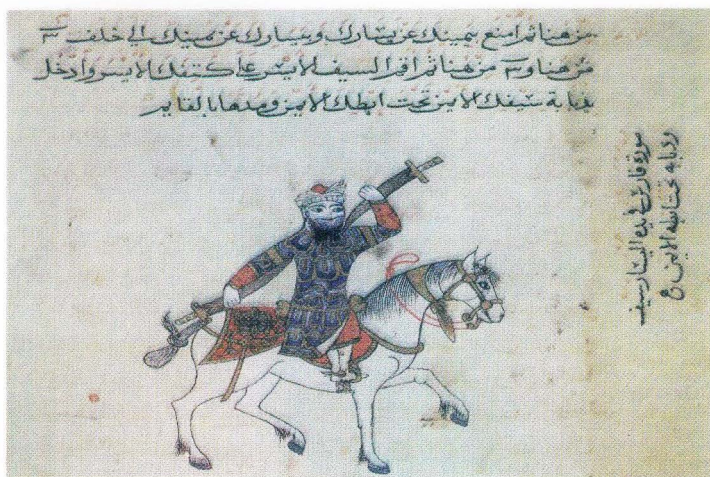 من هنا ثم امنع بيمينك عن يسارك وبيسارك عن يمينك الى خلف
من هنا و من هنا ثم اقر السيف الايسر على كتفك الايسر وادخل
ذبابة سيفك الايمن تحت ابطك الايمن ومدها بالقايم
صورة فارس في يده اليسار سيف
وذبابه تحت ابطه الايمن